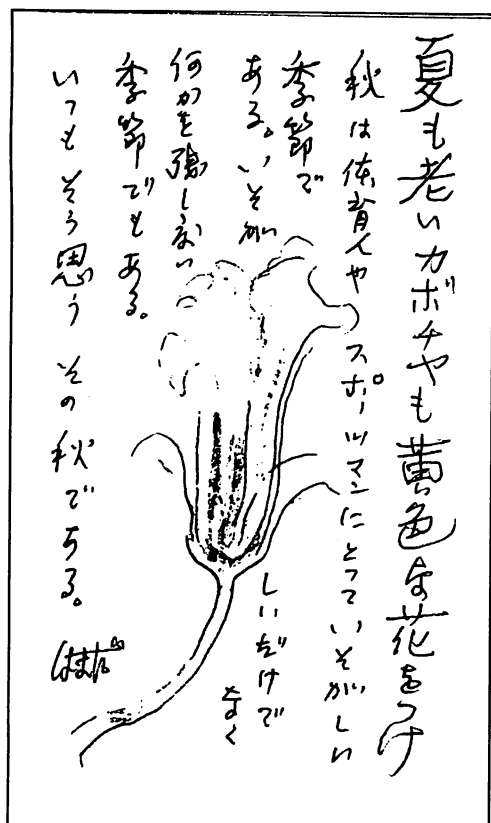 夏も老いカボチャも黄色な花をつけ
秋は体育人やスポーツマンにとっていそがしい
季節で
ある。いそがしいだけで
なく
何かを残したい
季節でもある。
いつもそう思うその秋である。
はまだ